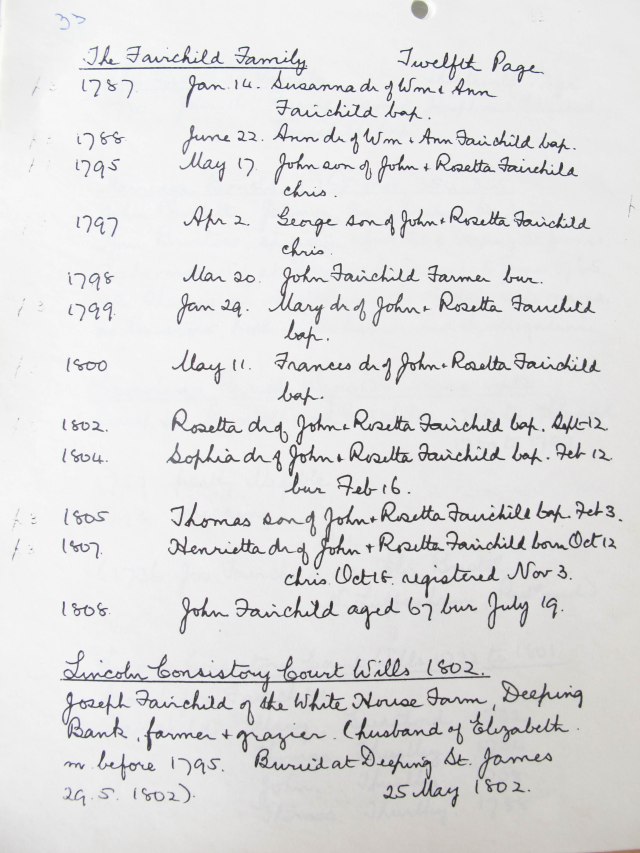 33
The Fairchild Family Twelfth Page
1787 Jan. 14. Susanna dr of Wm & Ann
Fairchild bap.
1788 June 22. Ann dr of Wm & Ann Fairchild bap.
1795 May 17. John son of John & Rosetta Fairchild
chris.
1797 Apr 2. George son of John & Rosetta Fairchild
chris.
1798 Mar 20. John Fairchild Farmer bur.
1799. Jan 29. Mary dr of John & Rosetta Fairchild
bap.
1800 May 11. Frances dr of John & Rosetta Fairchild
bap.
1802. Rosetta dr of John & Rosetta Fairchild bap. Sept 12
1804. Sophia dr of John & Rosetta Fairchild bap. Feb 12
bur Feb 16.
1805 Thomas son of John & Rosetta Fairchild bap. Feb 3.
1807. Henrietta dr of John & Rosetta Fairchild born Oct 12
chris Oct 18. registered Nov 3.
1808. John Fairchild aged 67 bur July 19.
Lincoln Consistory Court Wills 1802.
Joseph Fairchild of the White House Farm, Deeping
Bank, farmer & grazier. (husband of Elizabeth.
m. before 1795. Buried at Deeping St. James
29. 5. 1802). 25 May 1802.